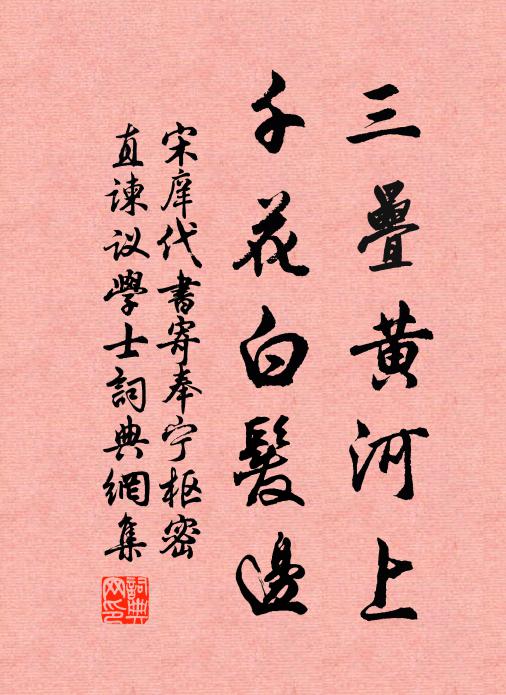 三疊黄河上
千花白髮邊
宋庠代書寄奉宁枢密
直諫议學士詞典網集